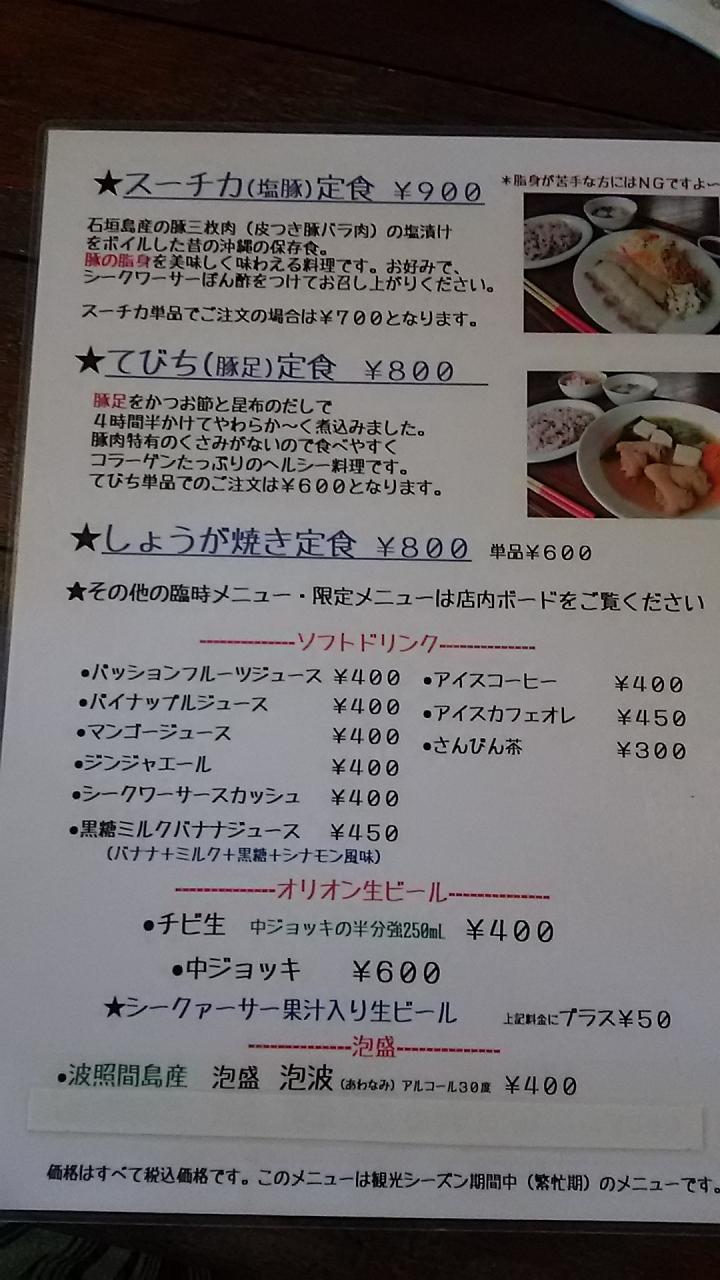 ★スーチカ(塩豚)定食 ¥900
＊脂身が苦手な方にはNGですよ～
石垣島産の豚三枚肉（皮つき豚バラ肉）の塩漬け
をボイルした昔の沖縄の保存食。
豚の脂身を美味しく味わえる料理です。お好みで、
シークワーサーぽん酢をつけてお召し上がりください。
スーチカ単品でご注文の場合は¥700となります。
★てびち(豚足)定食 ¥800
豚足をかつお節と昆布のだしで
4時間半かけてやわらか～く煮込みました。
豚肉特有のくさみがないので食べやすく
コラーゲンたっぷりのヘルシー料理です。
てびち単品でのご注文は¥600となります。
★しょうが焼き定食 ¥800 単品¥600
★その他の臨時メニュー・限定メニューは店内ボードをご覧ください
--------------ソフトドリンク--------------
●パッションフルーツジュース ¥400
●パイナップルジュース ¥400
●マンゴージュース ¥400
●ジンジャエール ¥400
●シークワーサースカッシュ ¥400
●黒糖ミルクバナナジュース ¥450
（バナナ＋ミルク＋黒糖＋シナモン風味）
●アイスコーヒー ¥400
●アイスカフェオレ ¥450
●さんぴん茶 ¥300
--------------オリオン生ビール--------------
●チビ生 中ジョッキの半分強250mL ¥400
●中ジョッキ ¥600
★シークァーサー果汁入り生ビール 上記料金にプラス¥50
--------------泡盛--------------
●波照間島産 泡盛 泡波（あわなみ）アルコール30度 ¥400
価格はすべて税込価格です。このメニューは観光シーズン期間中（繁忙期）のメニューです。